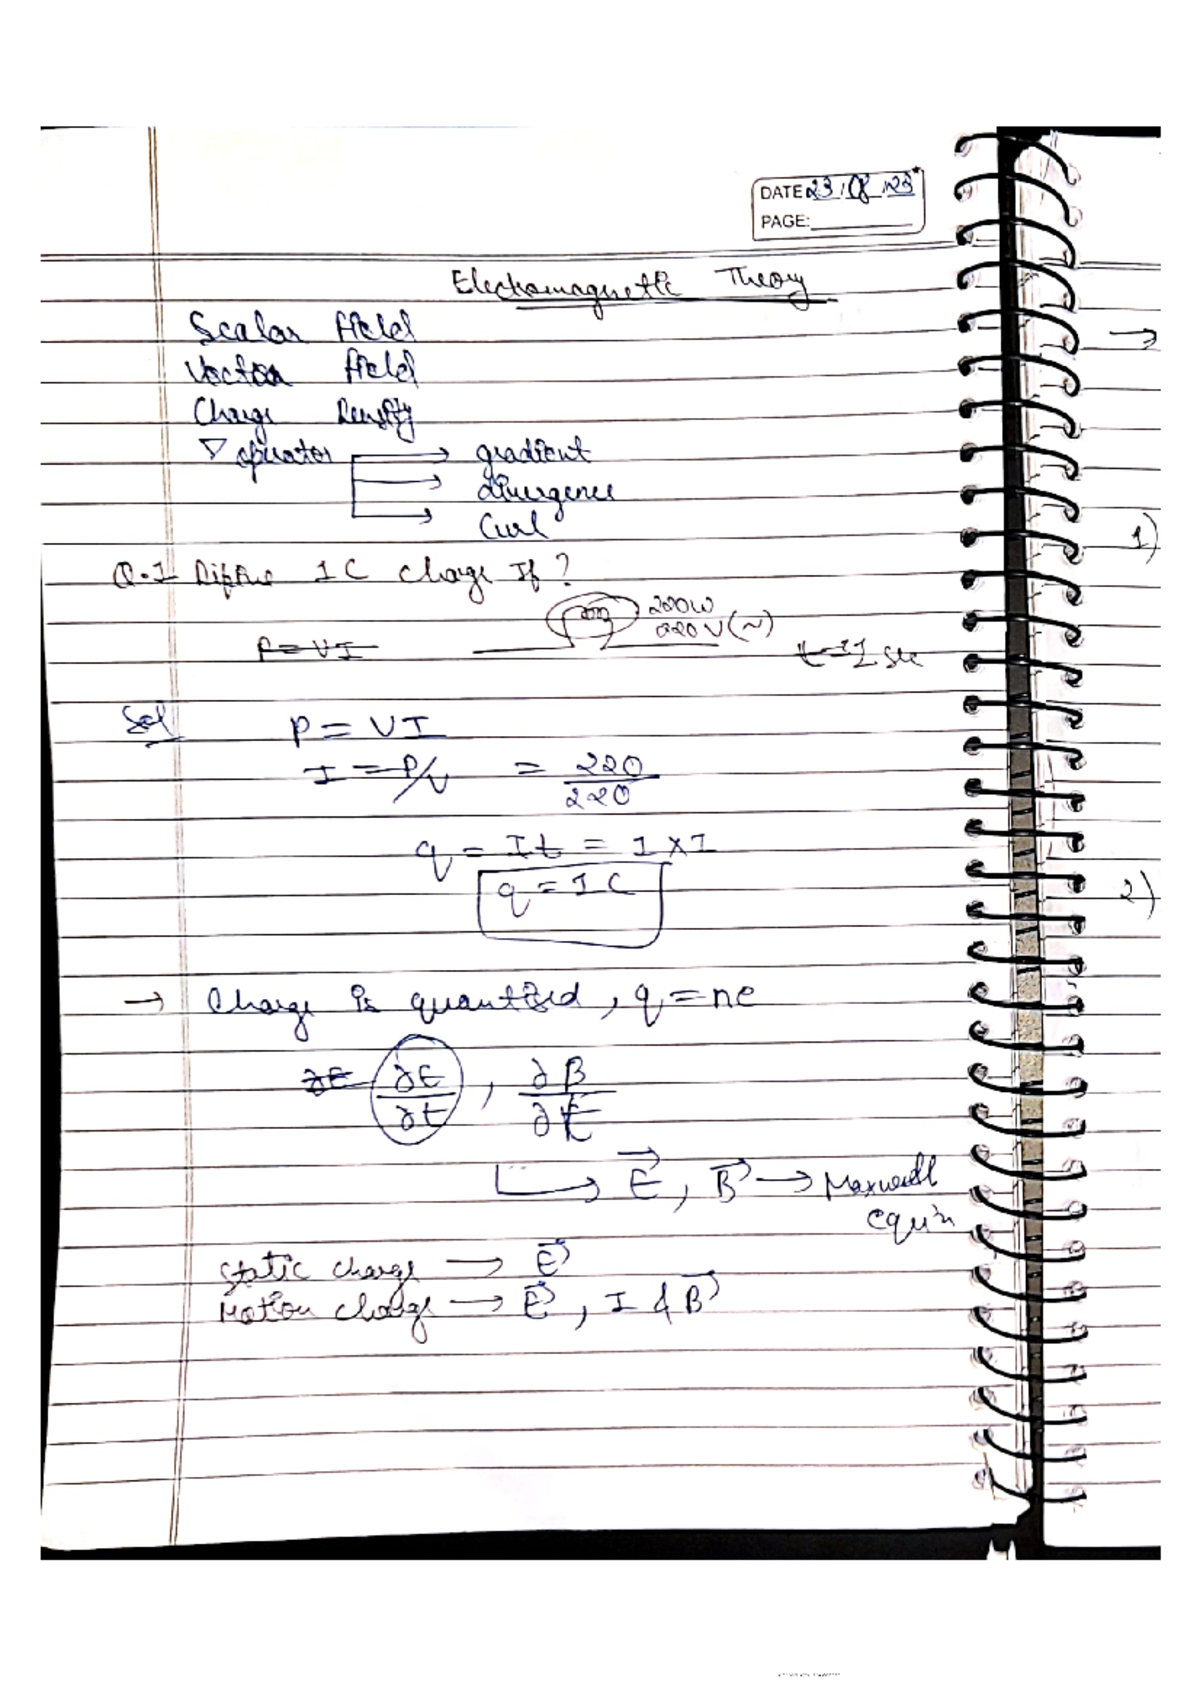 DATE 23/08/23
PAGE:
Electromagnetic Theory
Scalar field
Vector field
Charge Density
∇ operator → gradient
→ divergence
→ Curl
Q.1 Define 1 C charge If?
220W
220V(~)
P = VI
t = 1 sec
Sol P = VI
I = P/V = 220/220
q = It = 1 × 1
q = 1 C
→ Charge is quantized, q = ne
∂E ∂E/∂t, ∂B/∂t
→ E⃗, B⃗ → Maxwell
equ'n
Static charge → E⃗
Motion charge → E⃗, I & B⃗
→
1)
2)